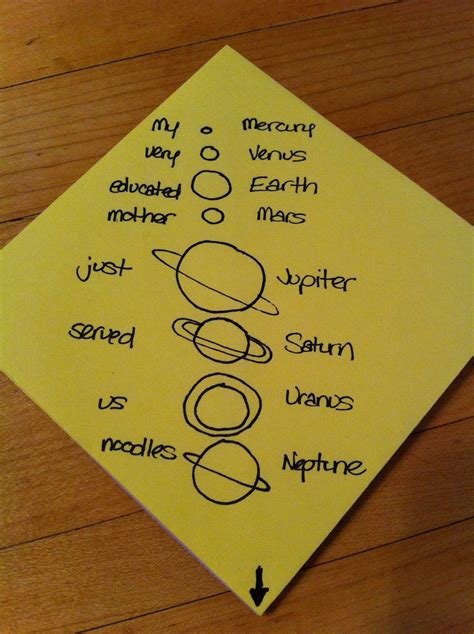 My Mercury
very Venus
educated Earth
mother Mars
just Jupiter
served Saturn
us Uranus
noodles Neptune